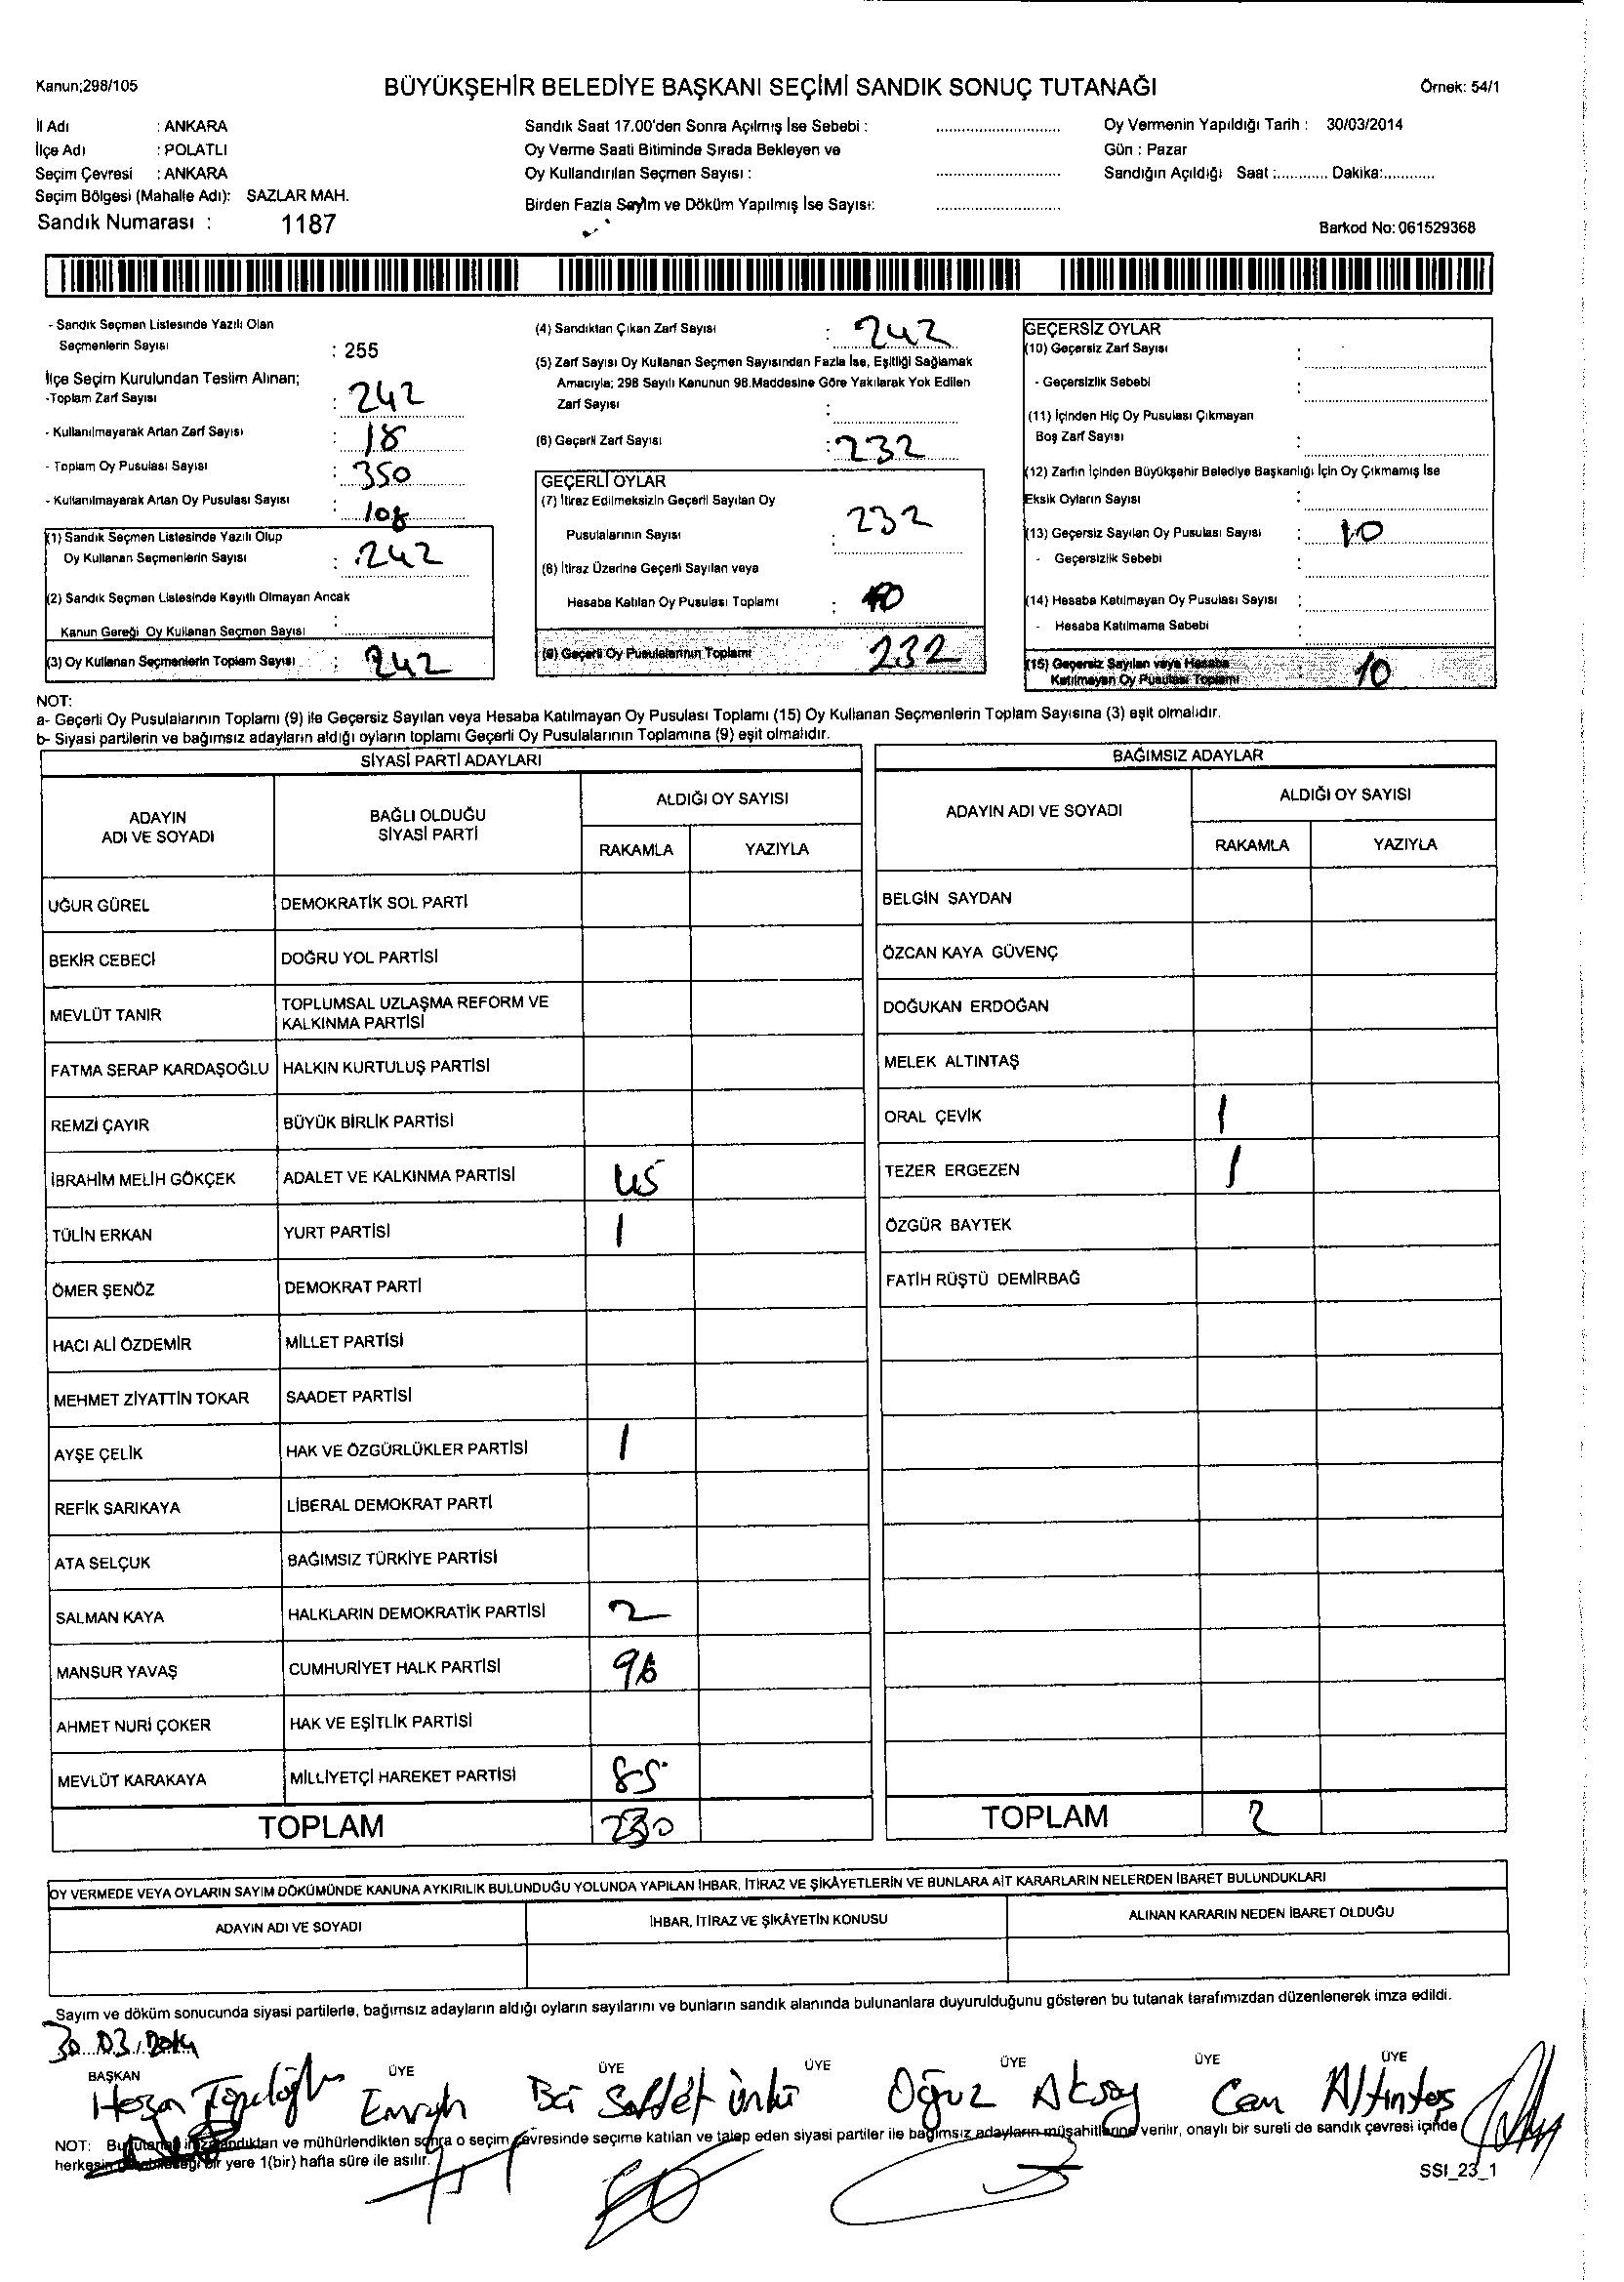 Kanun;298/105
BÜYÜKŞEHİR BELEDİYE BAŞKANI SEÇİMİ SANDIK SONUÇ TUTANAĞI
Örnek: 54/1
İl Adı : ANKARA
İlçe Adı : POLATLI
Seçim Çevresi : ANKARA
Seçim Bölgesi (Mahalle Adı): SAZLAR MAH.
Sandık Numarası : 1187
Sandık Saat 17.00'den Sonra Açılmış İse Sebebi :
Oy Verme Saati Bitiminde Sırada Bekleyen ve
Oy Kullandırılan Seçmen Sayısı :
Birden Fazla Sayım ve Döküm Yapılmış İse Sayısı:
Oy Vermenin Yapıldığı Tarih : 30/03/2014
Gün : Pazar
Sandığın Açıldığı Saat :............ Dakika:............
Barkod No: 061529368
- Sandık Seçmen Listesinde Yazılı Olan
Seçmenlerin Sayısı : 255
İlçe Seçim Kurulundan Teslim Alınan;
-Toplam Zarf Sayısı : 242
- Kullanılmayarak Artan Zarf Sayısı : 18
- Toplam Oy Pusulası Sayısı : 350
- Kullanılmayarak Artan Oy Pusulası Sayısı : 108
(1) Sandık Seçmen Listesinde Yazılı Olup
Oy Kullanan Seçmenlerin Sayısı : 242
(2) Sandık Seçmen Listesinde Kayıtlı Olmayan Ancak
Kanun Gereği Oy Kullanan Seçmen Sayısı :
(3) Oy Kullanan Seçmenlerin Toplam Sayısı : 242
(4) Sandıktan Çıkan Zarf Sayısı : 242
(5) Zarf Sayısı Oy Kullanan Seçmen Sayısından Fazla İse, Eşitliği Sağlamak
Amacıyla; 298 Sayılı Kanunun 98.Maddesine Göre Yakılarak Yok Edilen
Zarf Sayısı :
(6) Geçerli Zarf Sayısı : 232
GEÇERLİ OYLAR
(7) İtiraz Edilmeksizin Geçerli Sayılan Oy
Pusulalarının Sayısı : 232
(8) İtiraz Üzerine Geçerli Sayılan veya
Hesaba Katılan Oy Pusulası Toplamı :
(9) Geçerli Oy Pusulalarının Toplamı 232
GEÇERSİZ OYLAR
(10) Geçersiz Zarf Sayısı :
- Geçersizlik Sebebi :
(11) İçinden Hiç Oy Pusulası Çıkmayan
Boş Zarf Sayısı :
(12) Zarfın İçinden Büyükşehir Belediye Başkanlığı İçin Oy Çıkmamış İse
Eksik Oyların Sayısı :
(13) Geçersiz Sayılan Oy Pusulası Sayısı : 10
- Geçersizlik Sebebi :
(14) Hesaba Katılmayan Oy Pusulası Sayısı :
- Hesaba Katılmama Sebebi :
(15) Geçersiz Sayılan veya Hesaba
Katılmayan Oy Pusulası Toplamı 10
NOT:
a- Geçerli Oy Pusulalarının Toplamı (9) ile Geçersiz Sayılan veya Hesaba Katılmayan Oy Pusulası Toplamı (15) Oy Kullanan Seçmenlerin Toplam Sayısına (3) eşit olmalıdır.
b- Siyasi partilerin ve bağımsız adayların aldığı oyların toplamı Geçerli Oy Pusulalarının Toplamına (9) eşit olmalıdır.
SİYASİ PARTİ ADAYLARI
ADAYIN ADI VE SOYADI
BAĞLI OLDUĞU SİYASİ PARTİ
ALDIĞI OY SAYISI
RAKAMLA YAZIYLA
UĞUR GÜREL DEMOKRATİK SOL PARTİ
BEKİR CEBECİ DOĞRU YOL PARTİSİ
MEVLÜT TANIR TOPLUMSAL UZLAŞMA REFORM VE
KALKINMA PARTİSİ
FATMA SERAP KARDAŞOĞLU HALKIN KURTULUŞ PARTİSİ
REMZİ ÇAYIR BÜYÜK BİRLİK PARTİSİ
İBRAHİM MELİH GÖKÇEK ADALET VE KALKINMA PARTİSİ 45
TÜLİN ERKAN YURT PARTİSİ 1
ÖMER ŞENÖZ DEMOKRAT PARTİ
HACI ALİ ÖZDEMİR MİLLET PARTİSİ
MEHMET ZİYATTİN TOKAR SAADET PARTİSİ
AYŞE ÇELİK HAK VE ÖZGÜRLÜKLER PARTİSİ 1
REFİK SARIKAYA LİBERAL DEMOKRAT PARTİ
ATA SELÇUK BAĞIMSIZ TÜRKİYE PARTİSİ
SALMAN KAYA HALKLARIN DEMOKRATİK PARTİSİ 2
MANSUR YAVAŞ CUMHURİYET HALK PARTİSİ 96
AHMET NURİ ÇOKER HAK VE EŞİTLİK PARTİSİ
MEVLÜT KARAKAYA MİLLİYETÇİ HAREKET PARTİSİ 85
TOPLAM 230
BAĞIMSIZ ADAYLAR
ADAYIN ADI VE SOYADI
ALDIĞI OY SAYISI
RAKAMLA YAZIYLA
BELGİN SAYDAN
ÖZCAN KAYA GÜVENÇ
DOĞUKAN ERDOĞAN
MELEK ALTINTAŞ
ORAL ÇEVİK 1
TEZER ERGEZEN 1
ÖZGÜR BAYTEK
FATİH RÜŞTÜ DEMİRBAĞ
TOPLAM 2
OY VERMEDE VEYA OYLARIN SAYIM DÖKÜMÜNDE KANUNA AYKIRILIK BULUNDUĞU YOLUNDA YAPILAN İHBAR, İTİRAZ VE ŞİKÂYETLERİN VE BUNLARA AİT KARARLARIN NELERDEN İBARET BULUNDUKLARI
ADAYIN ADI VE SOYADI
İHBAR, İTİRAZ VE ŞİKÂYETİN KONUSU
ALINAN KARARIN NEDEN İBARET OLDUĞU
Sayım ve döküm sonucunda siyasi partilerle, bağımsız adayların aldığı oyların sayılarını ve bunların sandık alanında bulunanlara duyurulduğunu gösteren bu tutanak tarafımızdan düzenlenerek imza edildi.
30.03.2014
BAŞKAN ÜYE ÜYE ÜYE ÜYE ÜYE ÜYE
Oğuz Aksoy Can Altıntaş
NOT: Bu tutanak imzalandıktan ve mühürlendikten sonra o seçim çevresinde seçime katılan ve talep eden siyasi partiler ile bağımsız adayların müşahitlerine verilir, onaylı bir sureti de sandık çevresi içinde
herkesin görebileceği bir yere 1(bir) hafta süre ile asılır.
SSI_23_1